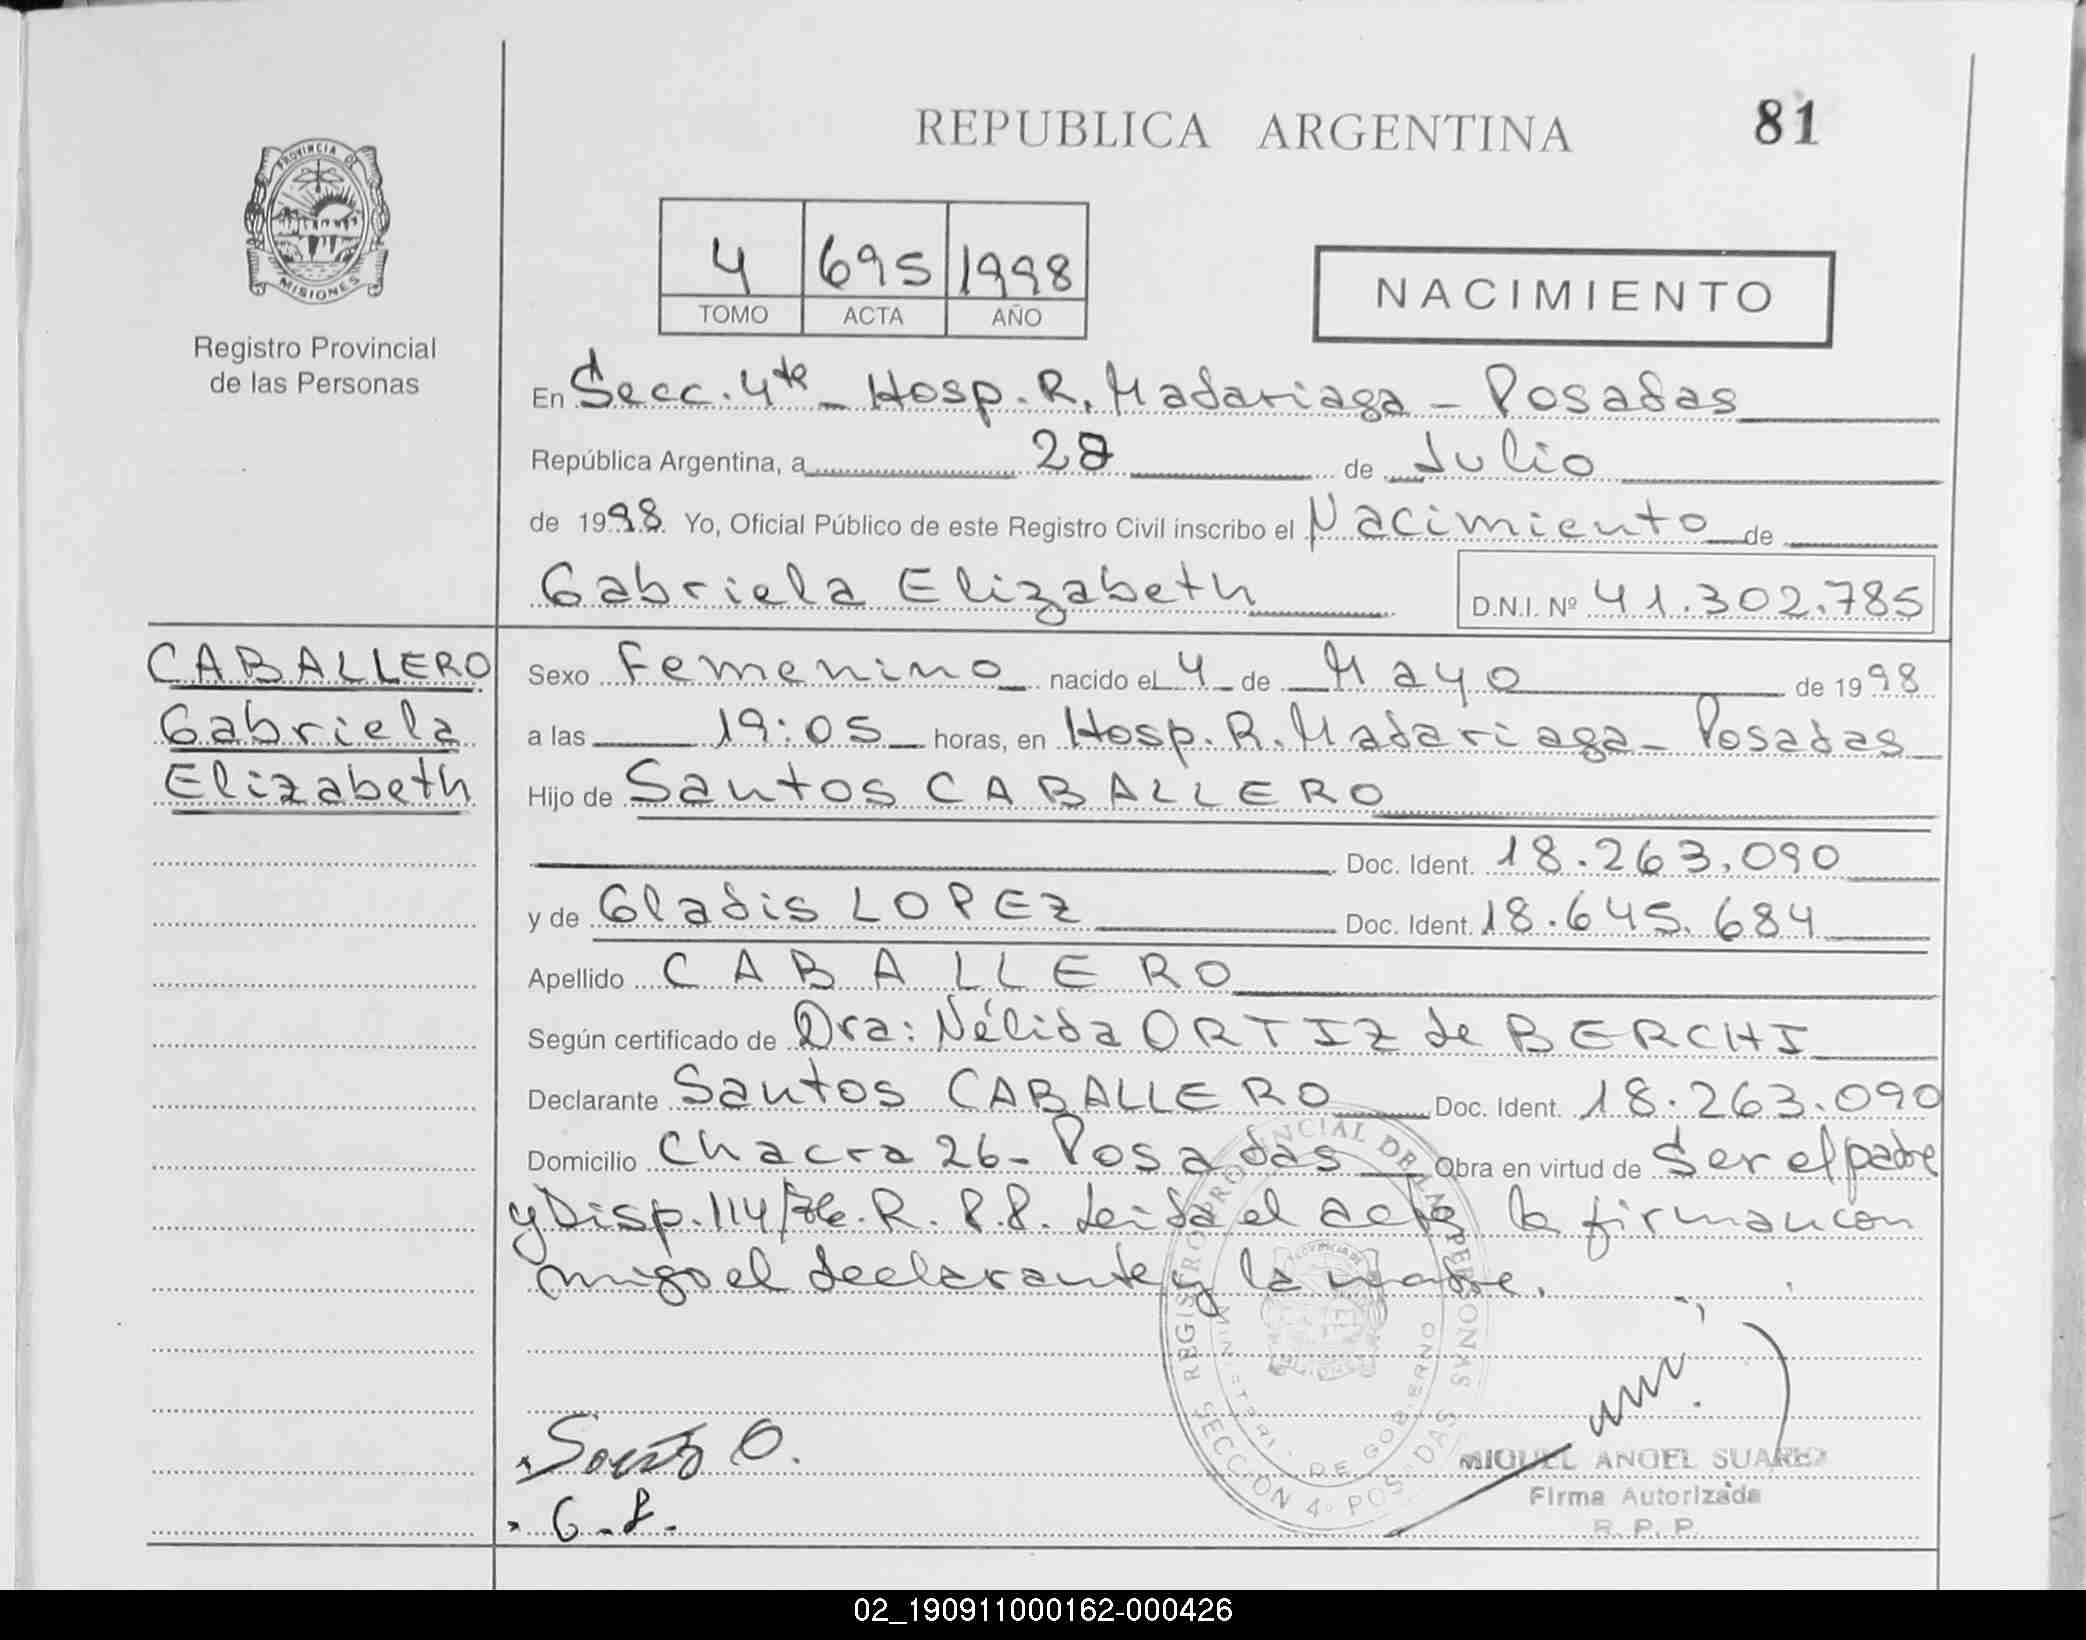 REPUBLICA ARGENTINA
81
PROVINCIA DE
MISIONES
Registro Provincial
de las Personas
4 695 1998
TOMO ACTA AÑO
NACIMIENTO
En Secc. 4ta - Hosp. R. Madariaga - Posadas
República Argentina, a 28 de Julio
de 1998. Yo, Oficial Público de este Registro Civil inscribo el Nacimiento de
Gabriela Elizabeth
D.N.I. Nº 41.302.785
CABALLERO
Gabriela
Elizabeth
Sexo Femenino nacido el 4 de Mayo de 1998
a las 19:05 horas, en Hosp. R. Madariaga - Posadas
Hijo de Santos CABALLERO
Doc. Ident. 18.263.090
y de Gladis LOPEZ Doc. Ident. 18.645.684
Apellido CABALLERO
Según certificado de Dra: Nélida ORTIZ de BERCHI
Declarante Santos CABALLERO Doc. Ident. 18.263.090
Domicilio Chacra 26 - Posadas Obra en virtud de Ser el padre
y Disp. 114/76. R. P. P. Leida el acta la firman con
migo el declarante y la madre.
REGISTRO PROVINCIAL DE LAS PERSONAS
MINISTERIO DE GOBIERNO
SECCION 4º POSADAS
G. L.
MIGUEL ANGEL SUAREZ
Firma Autorizada
R. P. P.
02_190911000162-000426